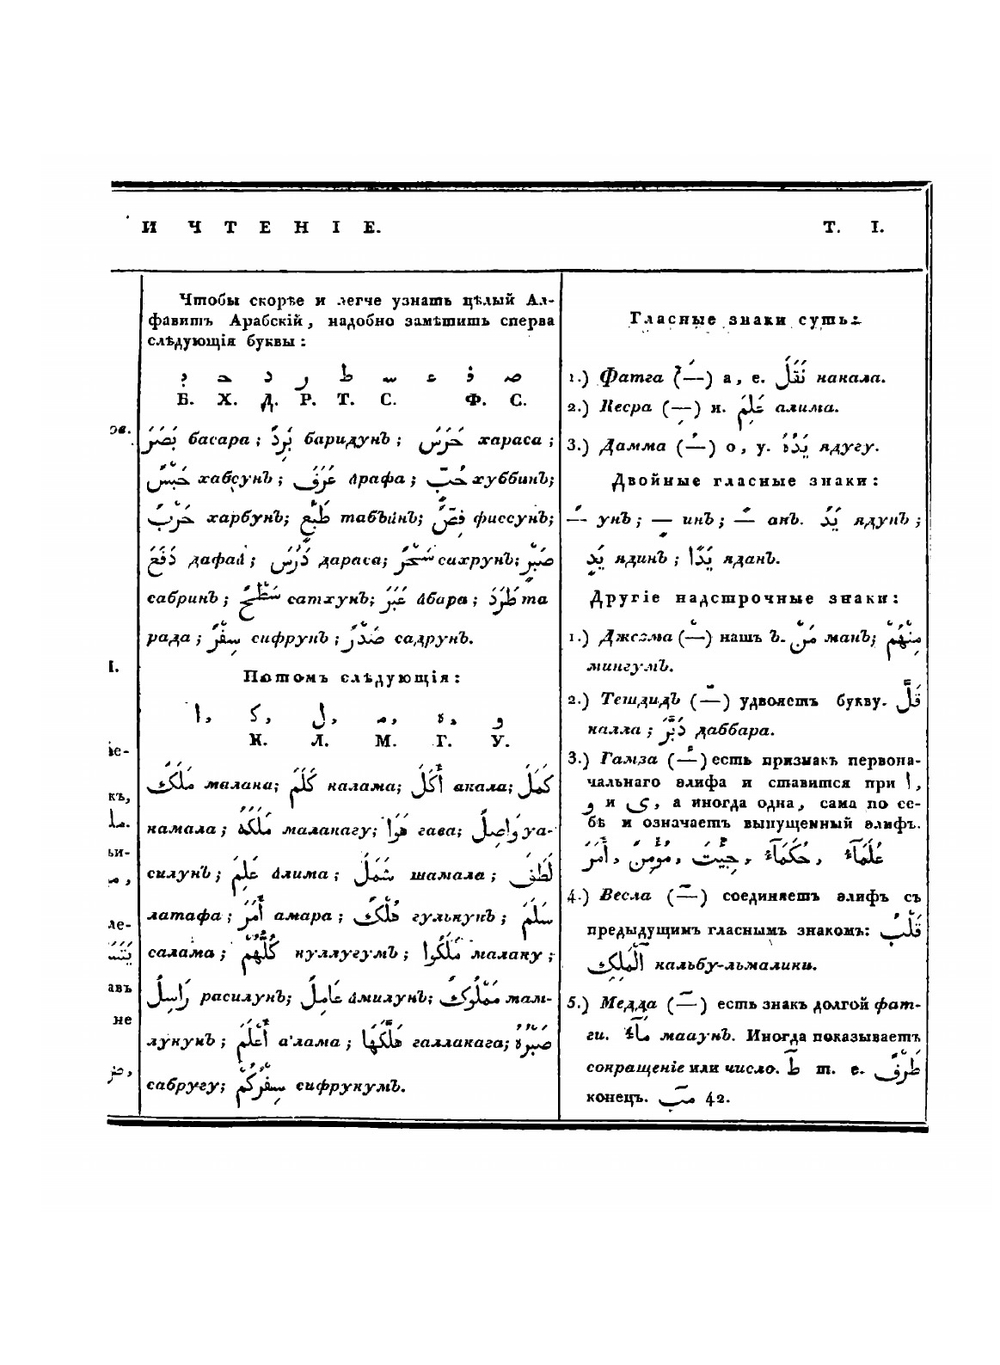 И ЧТЕНІЕ.
Т. I.
Чтобы скорѣе и легче узнать цѣлый Ал-
фавитъ Арабскій, надобно замѣтить сперва
слѣдующія буквы:
Б. Х. Д. Р. Т. С. Ф. С.
بَصَرَ басара; بَرِدٌ баридунъ; حَرَسَ хараса;
حَبْسٌ хабсунъ; عَرَفَ арафа; حُبٍّ хуббинъ;
حَرْبٌ харбунъ; طَبْعٍ табъинъ; فِصٌّ фиссунъ;
دَفَعَ дафаа; دَرَسَ дараса; سَحْرٌ сахрунъ; صَبْرٍ
сабринъ; سَطْحٌ сатхунъ; عَبَرَ абара; طَرَدَ та
рада; سِفْرٌ сифрунъ; صَدْرٌ садрунъ.
Потомъ слѣдующія:
ا, ك, ل, م, ه, و
К. Л. М. Г. У.
مَلَكَ малака; كَلَمَ калама; أَكَلَ акала; كَمَلَ
камала; مَلَكَهُ малакагу; هَوَا гава; وَاصِلٌ уа-
силунъ; عَلِمَ алима; شَمَلَ шамала; لَطَفَ
латафа; أَمَرَ амара; هُلْكٌ гулькунъ; سَلَمَ
салама; كُلُّهُمْ куллугумъ; مَلَكُوا малаку;
رَاسِلٌ расилунъ; عَامِلٌ амилунъ; مَمْلُوكٌ мам-
лукунъ; أَعْلَمَ а'лама; هَلَّكَهَا галлакага; صَبْرُهُ
сабругу; سِفْرُكُمْ сифрукумъ.
Гласные знаки суть:
1.) Фатга (—) а, е. نَقَلَ накала.
2.) Кесра (—) и. عَلِمَ алима.
3.) Дамма (—) о, у. يَدُهُ ядугу.
Двойные гласные знаки:
— унъ; — инъ; — анъ. يَدٌ ядунъ;
يَدٍ ядинъ; يَدًا яданъ.
Другіе надстрочные знаки:
1.) Джезма (—) нашъ ъ. مَنْ манъ; مِنْهُمْ
мингумъ.
2.) Тешдидъ (—) удвояетъ букву. قَلَّ
калла; دَبَّرَ даббара.
3.) Гамза (—) есть признакъ первона-
чальнаго элифа и ставится при ا,
و и ى, а иногда одна, сама по се-
бѣ и означаетъ выпущенный элифъ.
أَمَرَ, مُؤْمِنٌ, جِئْتَ, حُكَمَآءُ, عُلَمَآءُ
4.) Весла (—) соединяетъ элифъ съ
предыдущимъ гласнымъ знакомъ: قَلْبُ
ٱلْمَلِكِ кальбу-льмалики.
5.) Медда (—) есть знакъ долгой фат-
ги. مَآءٌ мааунъ. Иногда показываетъ
сокращеніе или число. ط т. е. طَرَفٌ
конецъ. مب 42.
ов.
I.
ѣе-
къ,
ьи-
ле-
авъ
не